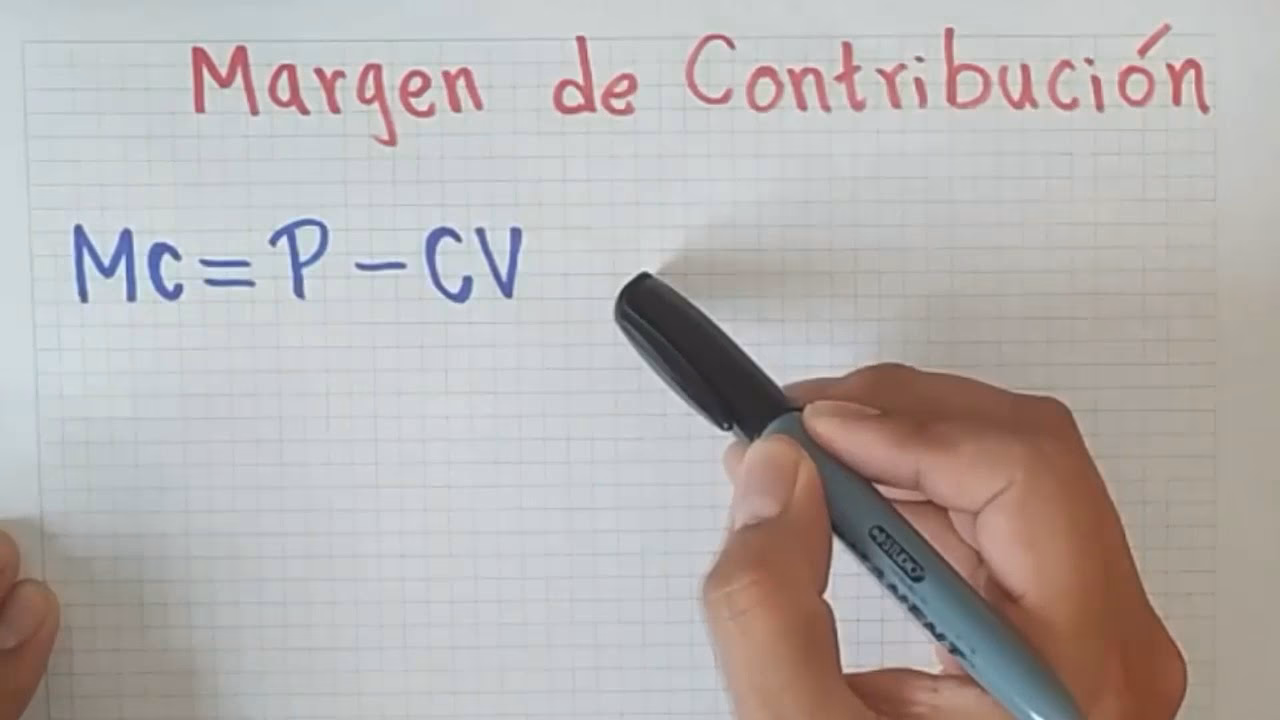 Margen de Contribución
MC = P - CV